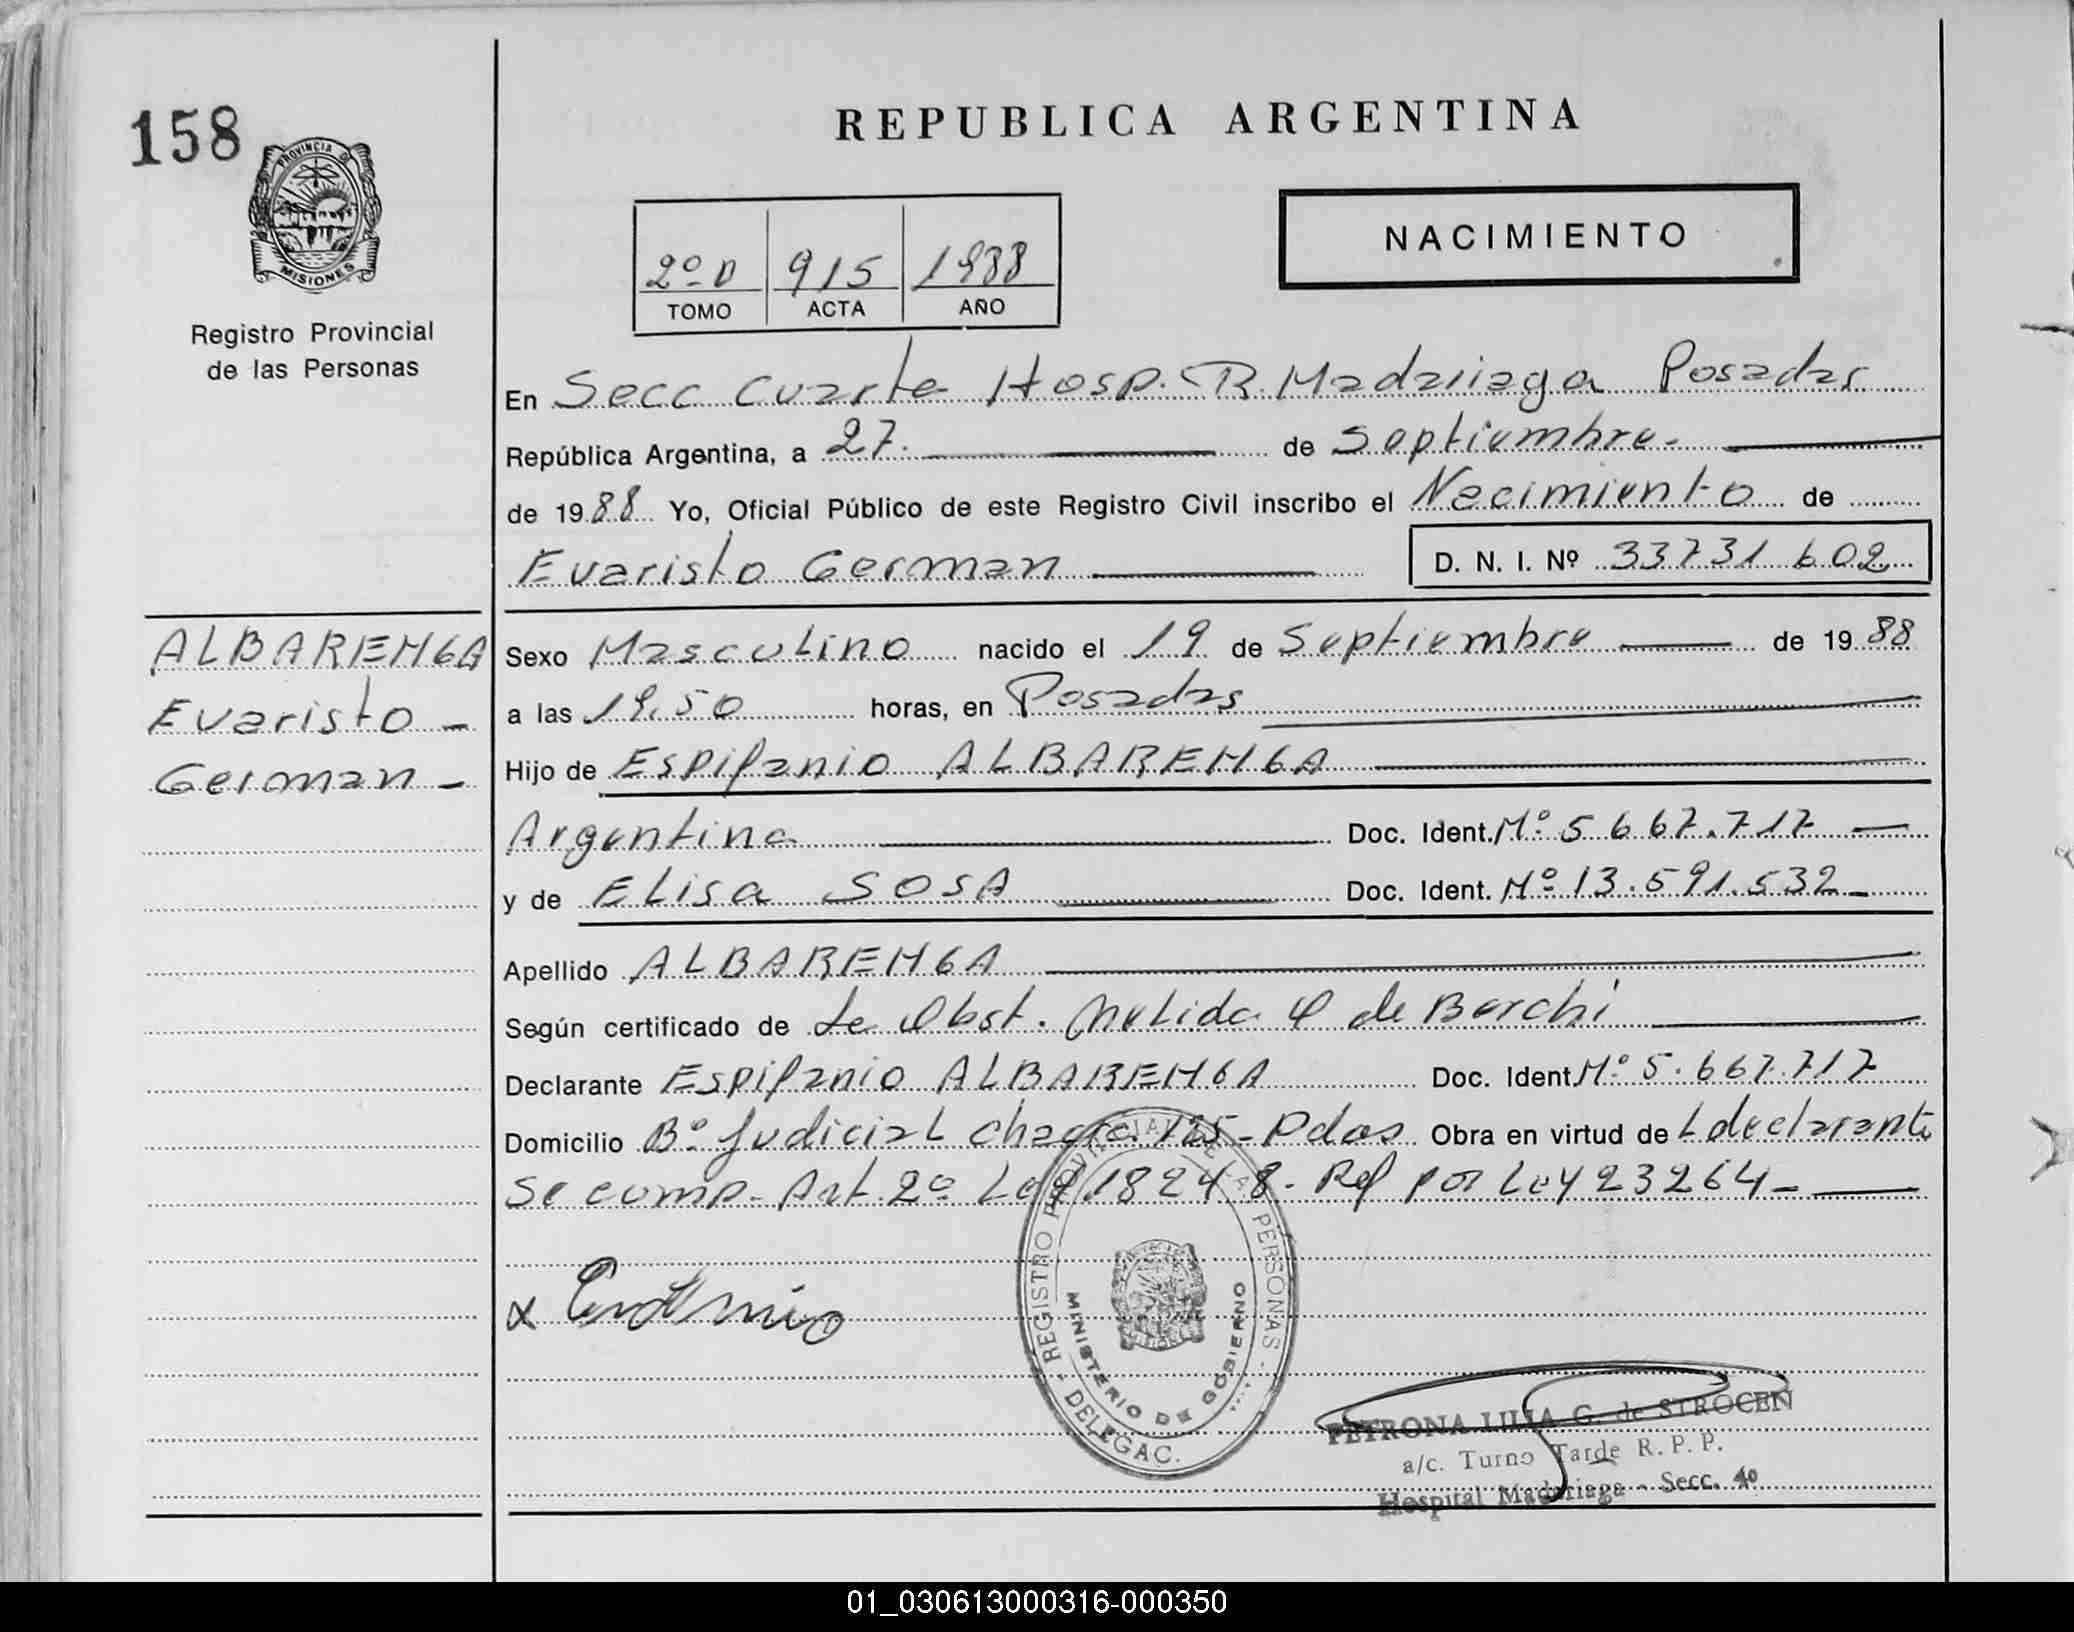 158
PROVINCIA DE
MISIONES
Registro Provincial
de las Personas
REPUBLICA ARGENTINA
2º D 915 1988
TOMO ACTA AÑO
NACIMIENTO
En Secc Cuarta Hosp. R. Madariaga Posadas
República Argentina, a 27. de Septiembre.
de 1988 Yo, Oficial Público de este Registro Civil inscribo el Nacimiento de
Evaristo German D. N. I. Nº 33731602
ALBARENGA
Evaristo -
German -
Sexo Masculino nacido el 19 de Septiembre de 1988
a las 19,50 horas, en Posadas
Hijo de Espifanio ALBARENGA
Argentina Doc. Ident. Nº 5667.717
y de ELisa SOSA Doc. Ident. Nº 13.591.532
Apellido ALBARENGA
Según certificado de La Obst. Nelida de Borchi
Declarante Espifanio ALBARENGA Doc. Ident Nº 5.667.717
Domicilio Bº Judicial chacra 125 - Pdas Obra en virtud de L declarante
Se comp. Art. 2º Ley 18248. Ref por Ley 23264
x
REGISTRO PROVINCIAL DE LAS PERSONAS - DELEGAC.
MINISTERIO DE GOBIERNO
PETRONA LILIA G. de STROCEN
a/c. Turno Tarde R. P. P.
Hospital Madariaga - Secc. 4º
01_030613000316-000350